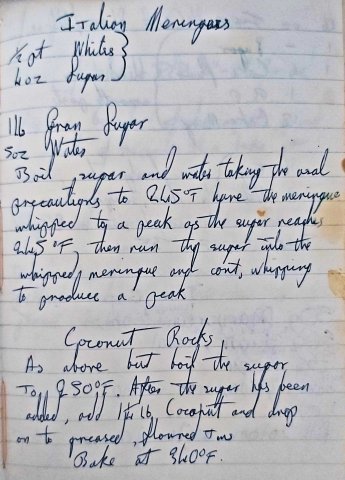 Italian Meringues
½ pt Whites
4 oz Sugar
1 lb Gran Sugar
5 oz Water
Boil sugar and water taking the usual
precautions to 245°F have the meringue
whipped to a peak as the sugar reaches
245°F, then run the sugar into the
whipped meringue and cont, whipping
to produce a peak
Coconut Rocks
As above but boil the sugar
To 250°F. After the sugar has been
added, add 1¼ lb, Coconut and drop
on to greased, floured Tins
Bake at 340°F.